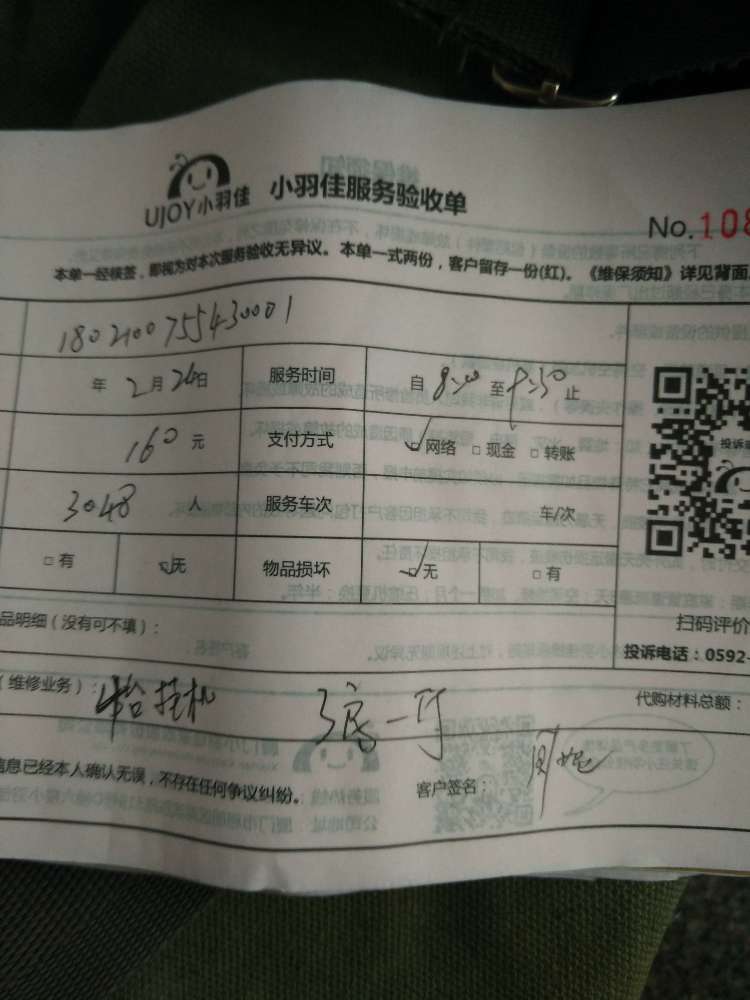 UJOY小羽佳 小羽佳服务验收单
No.108
本单一经核签，即视为对本次服务验收无异议。本单一式两份，客户留存一份(红)。《维保须知》详见背面
18021007555430001
年 2月26日 服务时间 自 8:00 至 9:30 止
160 元 支付方式 ☑网络 □现金 □转账
投诉
3048 人 服务车次 车/次
□有 ☑无 物品损坏 ☑无 □有
扫码评价
品明细（没有可不填）：
投诉电话：0592-
（维修业务）： 挂机 3房一厅 代购材料总额：
信息已经本人确认无误，不存在任何争议纠纷。 客户签名：